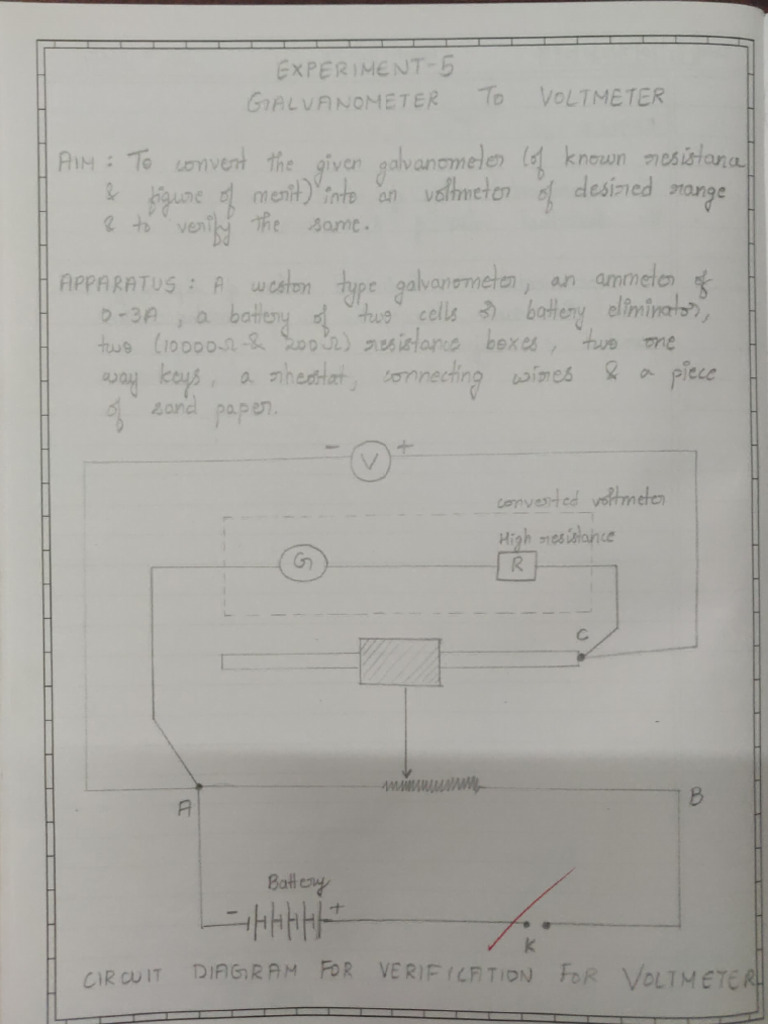 EXPERIMENT-5
GALVANOMETER TO VOLTMETER
AIM : To convert the given galvanometer (of known resistance
& figure of merit) into an voltmeter of desired range
& to verify the same.
APPARATUS : A weston type galvanometer, an ammeter of
0-3A, a battery of two cells or battery eliminator,
two (10000Ω & 200Ω) resistance boxes, two one
way keys, a rheostat, connecting wires & a piece
of sand paper.
- V +
converted voltmeter
High resistance
G R
C
A B
Battery
- +
K
CIRCUIT DIAGRAM FOR VERIFICATION FOR VOLTMETER